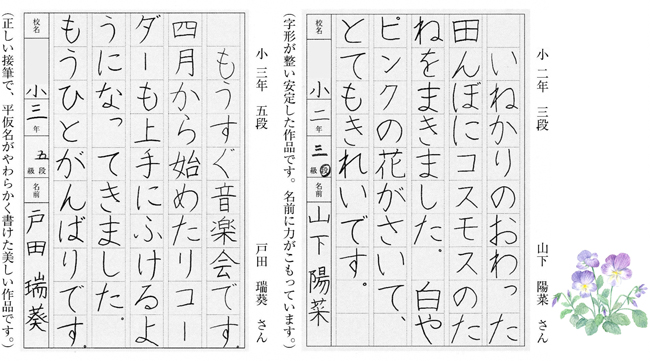 小 二年 三段 山下 陽菜 さん
いねかりのおわった
田んぼにコスモスのた
ねをまきました。白や
ピンクの花がさいて、
とてもきれいです。
校名 小二年 三段級 名前 山下 陽菜
(字形が整い安定した作品です。名前に力がこもっています。)
小 三年 五段 戸田 瑞葵 さん
もうすぐ音楽会です。
四月から始めたリコー
ダーも上手にふけるよ
うになってきました。
もうひとがんばりです。
校名 小三年 五段級 名前 戸田 瑞葵
(正しい接筆で、平仮名がやわらかく書けた美しい作品です。)